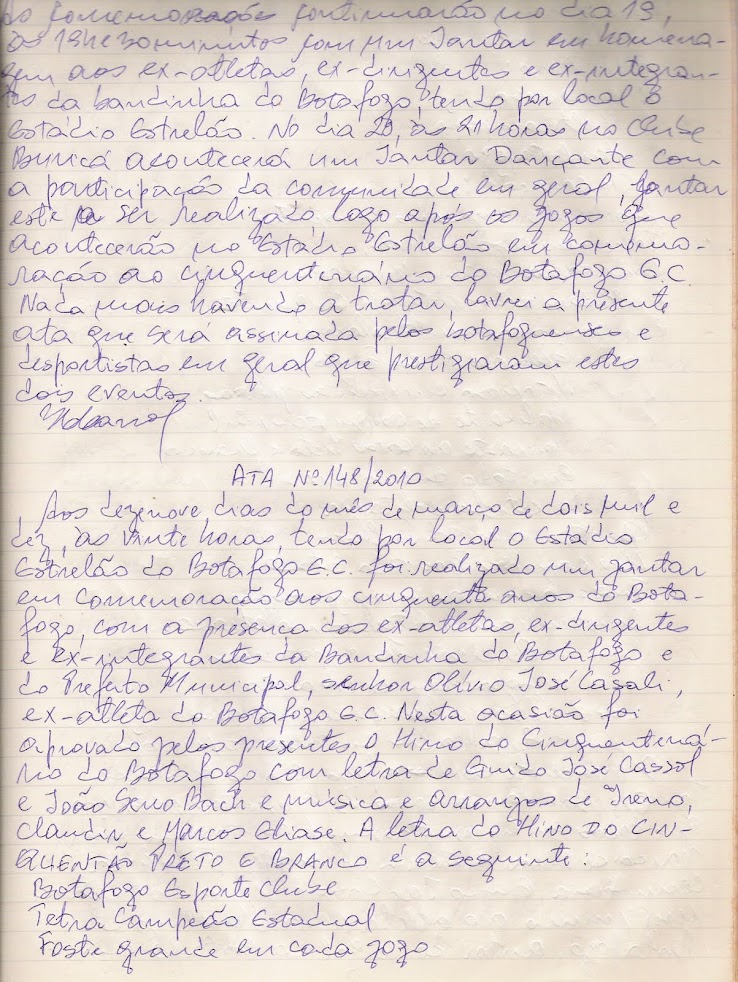 As comemorações continuarão no dia 19,
às 19h e 30 minutos com um Jantar em homena-
gem aos ex-atletas, ex-dirigentes e ex-integran-
tes da bandinha do Botafogo, tendo por local o
Estádio Estrelão. No dia 20, às 21 horas no Clube
Buricá acontecerá um Jantar Dançante com
a participação da comunidade em geral, jantar
este a ser realizado logo após os jogos que
acontecerão no Estádio Estrelão em comemo-
ração ao cinquentenário do Botafogo E.C.
Nada mais havendo a tratar, lavrei a presente
ata que será assinada pelos botafoguenses e
desportistas em geral que prestigiaram estes
dois eventos.
ATA Nº 148/2010
Aos dezenove dias do mês de março de dois mil e
dez, às vinte horas, tendo por local o Estádio
Estrelão do Botafogo E.C. foi realizado um jantar
em comemoração aos cinquenta anos do Bota-
fogo, com a presença dos ex-atletas, ex-dirigentes
e ex-integrantes da Bandinha do Botafogo e
do Prefeito Municipal, senhor Olívio José Casali,
ex-atleta do Botafogo E.C. Nesta ocasião foi
aprovado pelos presentes o Hino do Cinquentená-
rio do Botafogo com letra de Guido José Cassol
e João Seno Bach e música e arranjos de Ireno,
Claudir e Marcos Eliase. A letra do HINO DO CIN-
QUENTÃO PRETO E BRANCO é a seguinte:
Botafogo Esporte Clube
Tetra Campeão Estadual
Foste grande em cada jogo